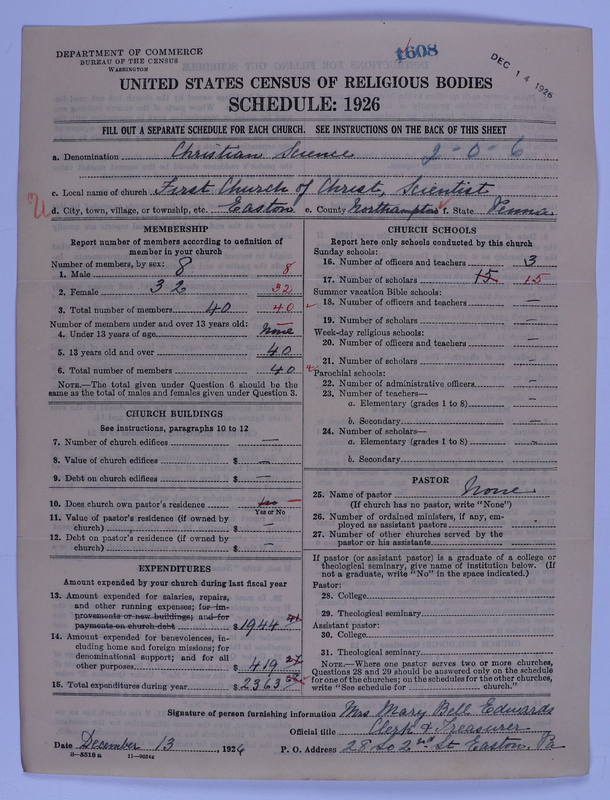 DEPARTMENT OF COMMERCE
BUREAU OF THE CENSUS
WASHINGTON
1608
DEC 14 1926
UNITED STATES CENSUS OF RELIGIOUS BODIES
SCHEDULE: 1926
FILL OUT A SEPARATE SCHEDULE FOR EACH CHURCH. SEE INSTRUCTIONS ON THE BACK OF THIS SHEET
a. Denomination Christian Science 2-0-6
c. Local name of church First Church of Christ, Scientist
d. City, town, village, or township, etc. Easton e. County Northampton f. State Penna.
MEMBERSHIP
Report number of members according to definition of member in your church
Number of members by sex:
1. Male 8 8
2. Female 32 32
3. Total number of members 40 40
Number of members under and over 13 years old:
4. Under 13 years of age None
5. 13 years old and over 40
6. Total number of members 40
NOTE.—The total given under Question 6 should be the
same as the total of males and females given under Question 3.
CHURCH BUILDINGS
See instructions, paragraphs 10 to 12
7. Number of church edifices —
8. Value of church edifices $ —
9. Debt on church edifices $ —
10. Does church own pastor's residence —
Yes or No
11. Value of pastor's residence (if owned by
church) $ —
12. Debt on pastor's residence (if owned by
church) $ —
EXPENDITURES
Amount expended by your church during last fiscal year
13. Amount expended for salaries, repairs,
and other running expenses; for im-
provements or new buildings; and for
payments on church debt $1944
14. Amount expended for benevolences, in-
cluding home and foreign missions; for
denominational support; and for all
other purposes $ 419
15. Total expenditures during year $2363
CHURCH SCHOOLS
Report here only schools conducted by this church
Sunday schools:
16. Number of officers and teachers 3
17. Number of scholars 15 15
Summer vacation Bible schools:
18. Number of officers and teachers —
19. Number of scholars —
Week-day religious schools:
20. Number of officers and teachers —
21. Number of scholars —
Parochial schools:
22. Number of administrative officers —
23. Number of teachers—
a. Elementary (grades 1 to 8) —
b. Secondary —
24. Number of scholars—
a. Elementary (grades 1 to 8) —
b. Secondary
PASTOR
25. Name of pastor None
(If church has no pastor, write "None")
26. Number of ordained ministers, if any, em-
ployed as assistant pastors
27. Number of other churches served by the
pastor or his assistants
If pastor (or assistant pastor) is a graduate of a college or
theological seminary, give name of institution below. (If
not a graduate, write "No" in the space indicated.)
Pastor:
28. College
29. Theological seminary
Assistant pastor:
30. College
31. Theological seminary
NOTE.—Where one pastor serves two or more churches,
Questions 28 and 29 should be answered only on the schedule
for one of the churches; on the schedules for the other churches,
write "See schedule for church."
Signature of person furnishing information Mrs Mary Bell Edwards
Official title Clerk & Treasurer
Date December 13, 1926 P. O. Address 28 So 2nd St Easton, Pa
8-5518a 11-9624c